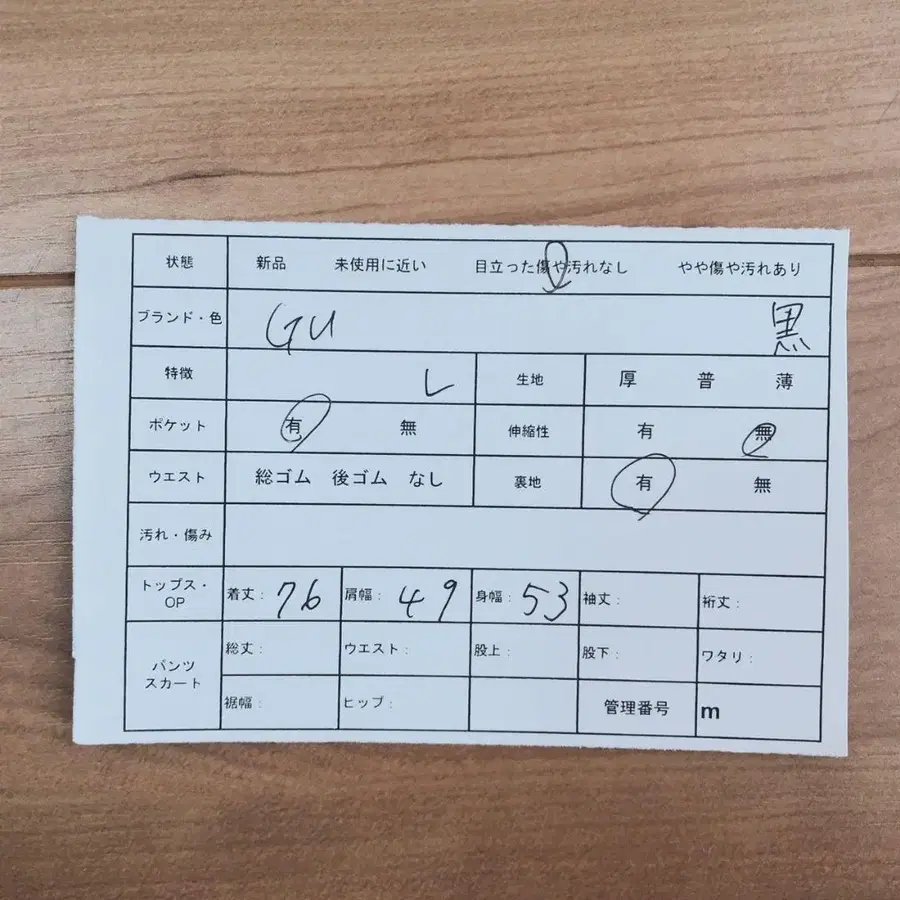 状態 新品 未使用に近い 目立った傷や汚れなし やや傷や汚れあり
ブランド・色 GU 黒
特徴 L 生地 厚 普 薄
ポケット 有 無 伸縮性 有 無
ウエスト 総ゴム 後ゴム なし 裏地 有 無
汚れ・傷み
トップス・OP 着丈: 76 肩幅: 49 身幅: 53 袖丈: 裄丈:
パンツ
スカート
総丈: ウエスト: 股上: 股下: ワタリ:
裾幅: ヒップ: 管理番号 m